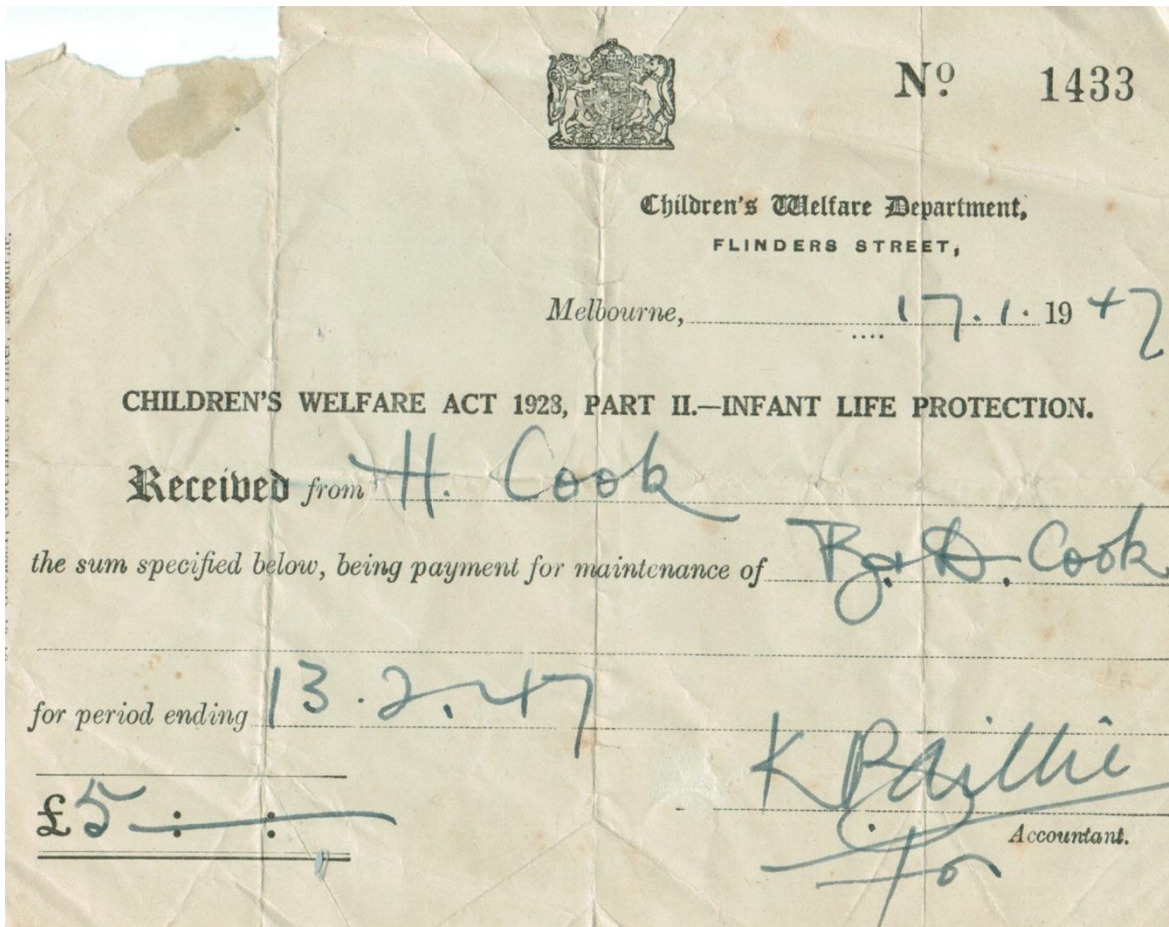 Nº 1433
Children's Welfare Department,
FLINDERS STREET,
Melbourne, 17.1.1947
CHILDREN'S WELFARE ACT 1923, PART II.—INFANT LIFE PROTECTION.
Received from H. Cook
the sum specified below, being payment for maintenance of B. & D. Cook
for period ending 13.2.47
K Baillie
£5 : — : —
Accountant.
for